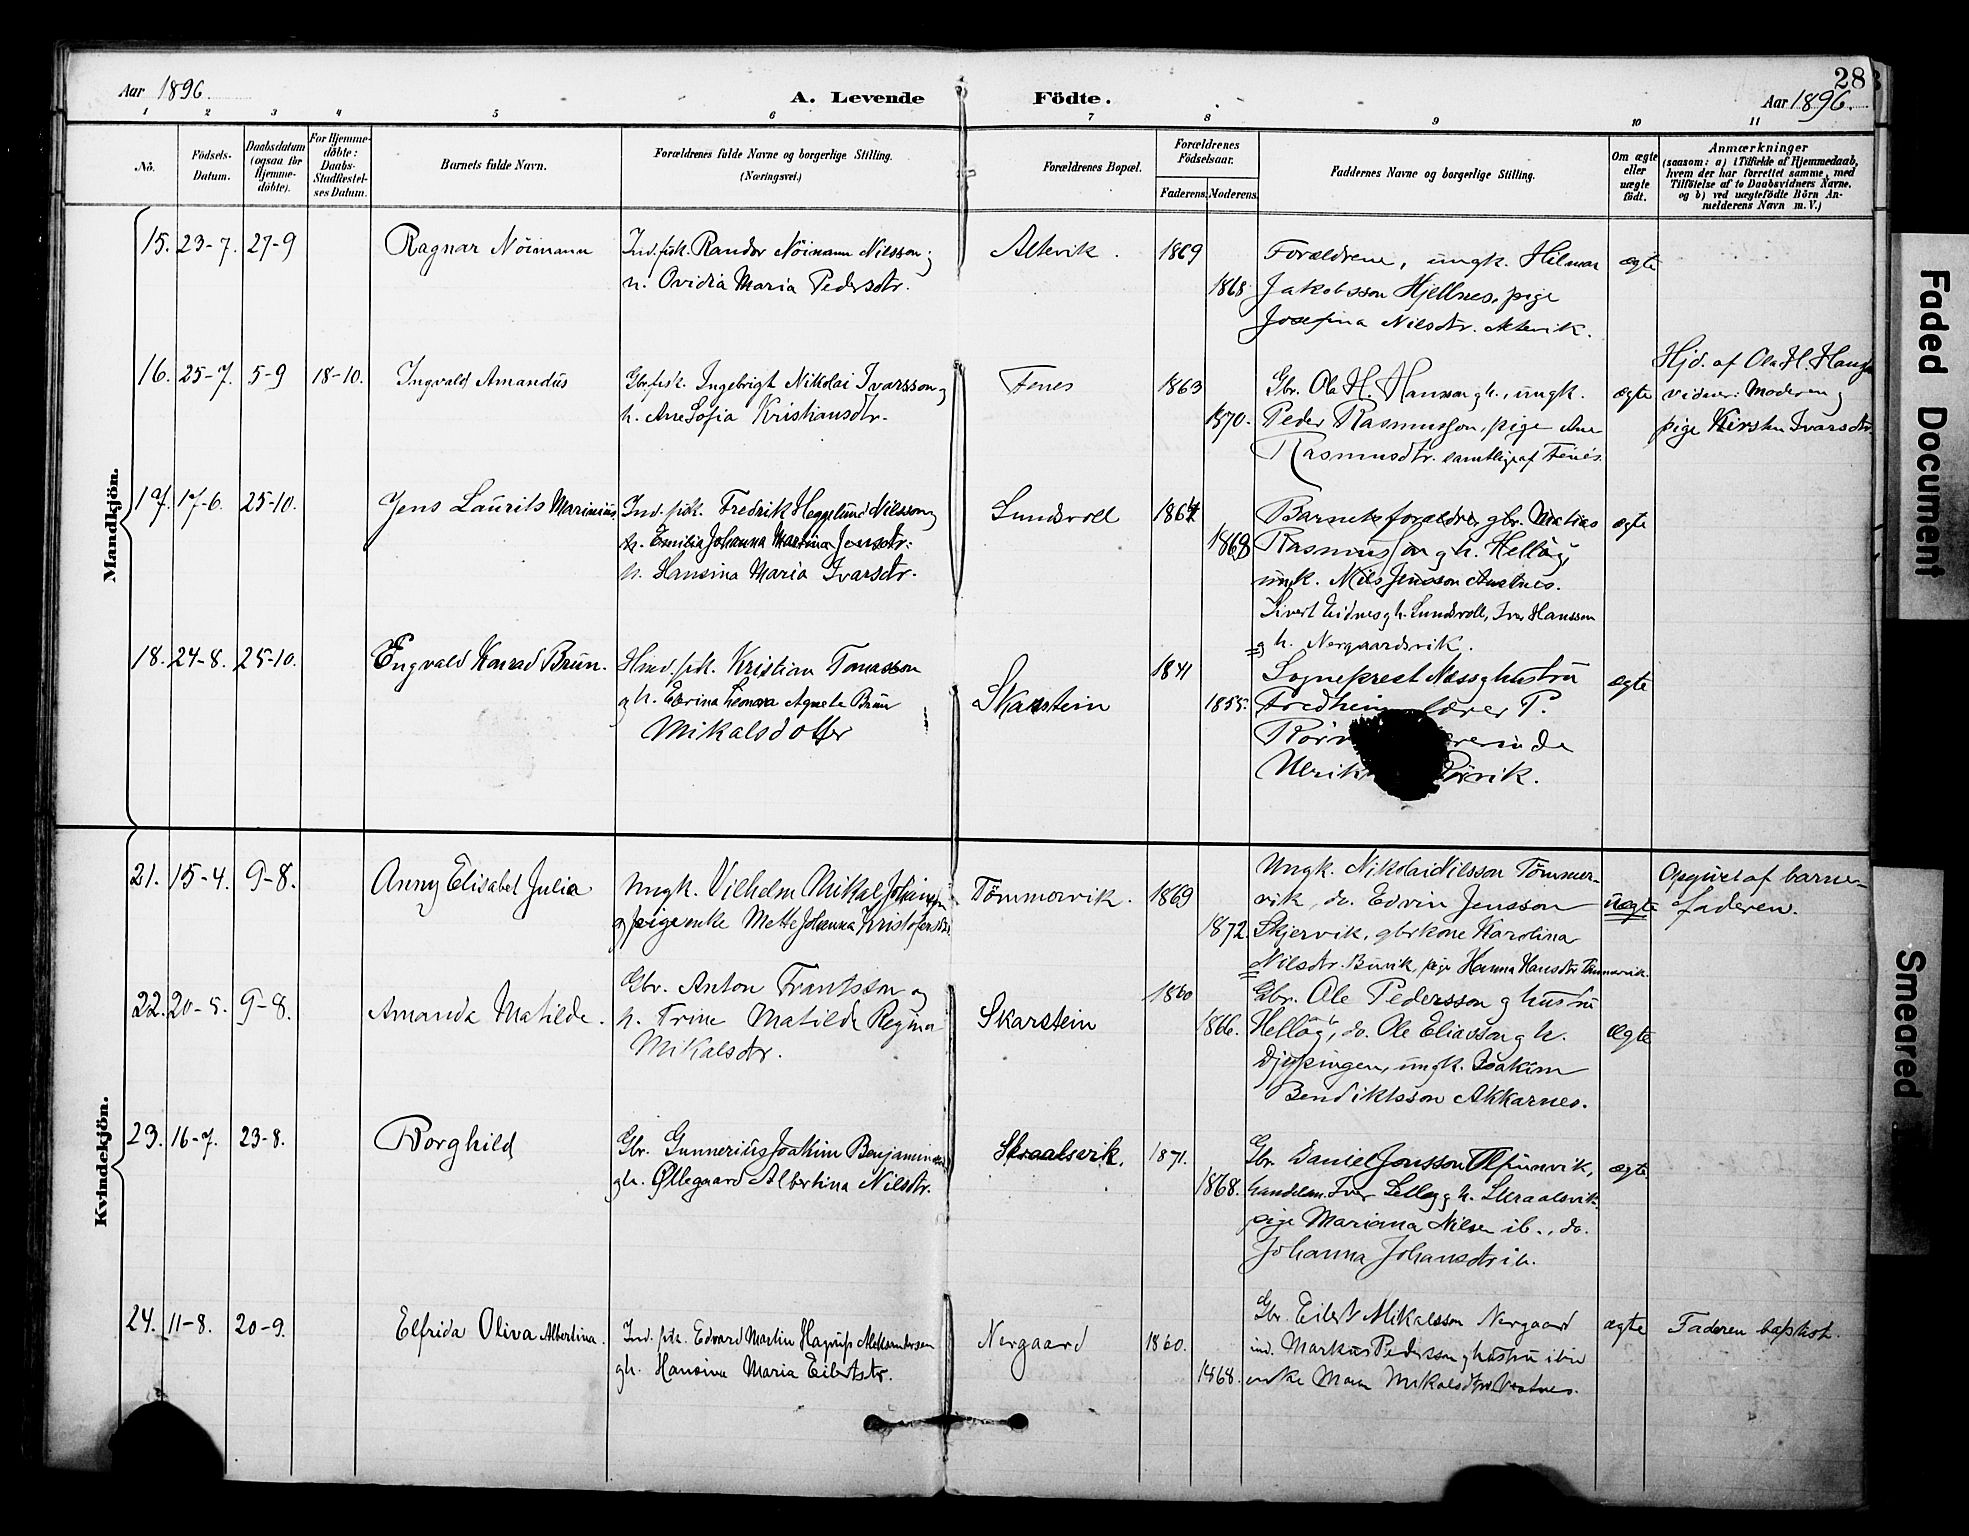 28
Aar 1896.
A. Levende Födte.
Aar 1896.
1 2 3 4 5 6 7 8 9 10 11
No.
Födsels-Datum.
Daabsdatum (ogsaa for Hjemme-döbte).
For Hjemme-döbte: Daabs-Stadfæstel-ses Datum.
Barnets fulde Navn.
Forældrenes fulde Navne og borgerlige Stilling. (Næringsvei.)
Forældrenes Bopæl.
Forældrenes Födselsaar.
Faderens. Moderens.
Faddernes Navne og borgerlige Stilling.
Om ægte eller uægte födt.
Anmærkninger
(saasom: a) i Tilfælde af Hjemmedaab, hvem der har forrettet samme, med Tilföielse af to Daabsvidners Navne, og b) ved uægtefödte Börn An-melderens Navn m. V.)
Mandkjön.
15. 23-7. 27-9 Ragnar Nöimann
Ind. fisk. Randor Nöimann Nilsson og
h. Ovidia Maria Pedersdtr.
Altevik. 1869 1868
Forældrene, ungk. Hilmar
Jakobsson Hjellnes, pige
Josefina Nilsdtr. Altevik.
ægte
16. 25-7. 5-9 18-10. Ingvald Amandus
Gbr. fisk. Ingebrigt Nikolai Ivarsson og
h. Ane Sofia Kristiansdtr.
Fenes 1863 1870.
Gbr. Ola H. Hansson g h., ungk.
Peder Rasmusson, pige Ane
Rasmusdtr. samtlige af Fenes.
ægte
Hjd. af Ola H. Hansson
vidner: Moderen og
pige Kirsten Ivarsdtr.
17. 17-6. 25-10. Jens Laurits Marinius
Ind. fisk. Fredrik Heggelund Nilsson og
h. Emilia Johanna Martina Jensdtr:
h. Hansina Maria Ivarsdtr.
Lundsvoll 1864 1868
Barnets forældre, gbr. Matias
Rasmusson g h. Hellög
ungk. Nils Jensson Austnes.
Sivert Eidnes g h. Lundsvoll, Ivar Hansson
g h. Nergaardsvik.
ægte
18. 24-8. 25-10. Engvald Konrad Brun.
Hmd. fisk. Kristian Tomasson
g h. Eserina Leonora Agneta Brun
Mikalsdotter
Skarstein 1841 1855.
Sogneprest Næss g hustru
Fredheim lærer P.
Rörv
Ulrik Rörvik.
ægte
Kvindekjön.
21. 15-4. 9-8. Anny Elisabet Julia
Ungk. Vilhelm Mikal Johansson
og pige enke Mette Johanna Kristofersdtr.
Tömmervik. 1869 1872.
Ungk. Nikolai Nilsson Tömmer-
vik, do. Edvin Jensson
Skjervik, gbrkone Karolina
Nilsdtr. Buvik, pige Hanna Hansdtr Tömmervik.
uægte
Opgivet af barne-
faderen.
22. 20-5. 9-8. Amanda Matilde.
Gbr. Anton Frantsson og
h. Trine Matilde Regina
Mikalsdtr.
Skarstein 1860 1866.
Gbr. Ole Pedersson g hustru
Hellög, do. Ole Eliasson g h.
Djupingen, ungk. Joakim
Bendiktsson Akkarnes.
ægte
23. 16-7. 23-8. Borghild
Gbr. Gunnerius Joakim Benjaminsson
g h. Öllegaard Albertina Nilsdtr.
Straalsvik. 1871. 1868.
Gbr. Daniel Jonsson Finnvik,
handelsm. Ivar g h. Straalsvik
pige Mariana Nilsen ib., do.
Johanna Johansdtr ib.
ægte
24. 11-8. 20-9. Elfrida Oliva Albertina.
Ind. fisk. Edvard Martin Hagrup Aleksandersen
g h. Hansine Maria Eilertsdtr.
Nergaard 1860. 1868.
Gbr. Eilert Mikalsson Nergaard
ind. Markus Pedersson g hustru ibid
enke Maren Mikalsdtr. Vestnes.
ægte
Faderen baptist.
Faded Document
Smeared